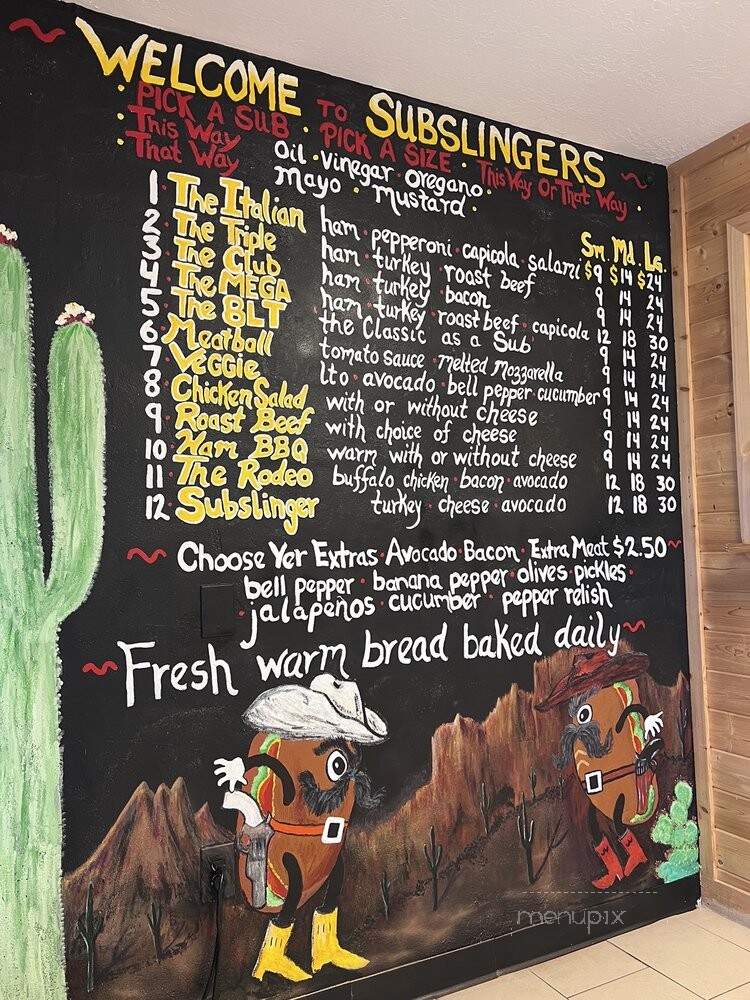 WELCOME TO SUBSLINGERS
PICK A SUB · PICK A SIZE · This Way Or That Way ·
· This Way Oil · vinegar · oregano ·
· That Way Mayo · mustard ·
Sm. Md. Lg.
1 · The Italian ham · pepperoni · capicola · salami $9 $14 $24
2 · The Triple ham · turkey · roast beef 9 14 24
3 · The Club ham · turkey · bacon 9 14 24
4 · The MEGA ham · turkey · roast beef · capicola 12 18 30
5 · The BLT the Classic as a Sub 9 14 24
6 · Meatball tomato sauce · melted Mozzarella 9 14 24
7 · Veggie lto · avocado · bell pepper · cucumber 9 14 24
8 · Chicken Salad with or without cheese 9 14 24
9 · Roast Beef with choice of cheese 9 14 24
10 · Ham BBQ warm with or without cheese 9 14 24
11 · The Rodeo buffalo chicken · bacon · avocado 12 18 30
12 · Subslinger turkey · cheese · avocado 12 18 30
~ Choose Yer Extras · Avocado · Bacon · Extra Meat $2.50 ~
bell pepper · banana pepper · olives · pickles ·
· jalapeños · cucumber · pepper relish
~ Fresh warm bread baked daily ~
menupix